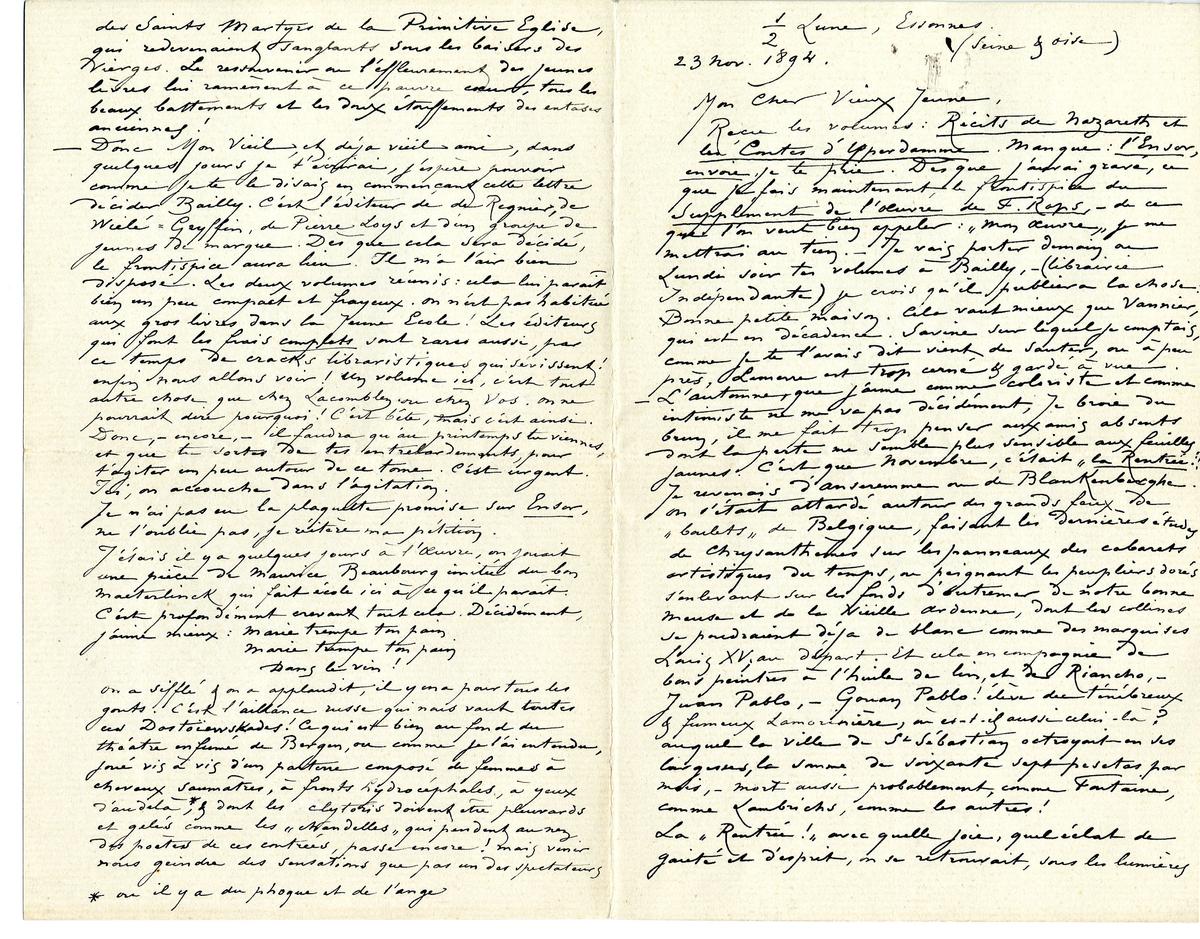 1/2 Lune, Essonnes.
(Seine & oise)
23 Nov. 1894.
Mon Cher Vieux Jeune,
Reçu les volumes : Récits de Nazareth et
les Contes d'Yperdamme. Manque : l'Ensor,
envoie je te prie. Dès que j'aurai gravé, ce
que je fais maintenant le frontispice du
Supplément de l'Œuvre de F. Rops, – de ce
que l'on veut bien appeler : „mon œuvre„ je me
mettrai au tien. – Je vais porter demain ou
Lundi soir tes volumes à Bailly, – (librairie
Indépendante) je crois qu'il publiera la chose.
Bonne petite maison. Cela vaut mieux que Vannier,
qui est en décadence. Savine sur lequel je comptais,
comme je te l'avais dit vient de sauter, ou à peu
près, Lemerre est trop cerné & gardé à vue.
– L'automne, que j'aime comme coloriste et comme
intimiste ne me va pas décidément, Je broie du
brun, il me fait trop penser aux amis absents
dont la perte me semble plus sensible aux feuilles
jaunes. C'est que Novembre, c'était „la Rentrée„!
Je revenais d'Anseremme ou de Blankenberghe.
on s'était attardé autour des grands feux de
„boulets„ de Belgique, faisant les dernières études
de Chrysanthèmes sur les panneaux des cabarets
artistiques du temps, ou peignant les peupliers dorés
s'enlevant sur les fonds d'outremer de notre bonne
Meuse et de la vieille Ardenne, dont les collines
se poudraient déjà de blanc comme des marquises
Louis XV, au départ. Et cela en compagnie de
bons peintres à l'huile de lin, et de Riancho, –
Juan Pablo, – Gouan Pablo! élève du ténébreux
& fumeux Lamorinière, où es-t-il aussi celui-là?
auquel la ville de St Sébastian octroyait en ses
largesses, la somme de soixante sept pesetas par
mois, – mort aussi probablement, comme Fontaine,
comme Lambrichs, comme les autres!
La „Rentrée!„ avec quelle joie, quel éclat de
gaité et d'esprit, on se retrouvait, sous les lumières
des Saints Martyrs de la Primitive Eglise,
qui redevenaient sanglants sous les baisers des
Vierges. Le ressouvenir ou l'effleurement des jeunes
lèvres lui ramènent à ce pauvre cœur, tous les
beaux battements et les doux étouffements des extases
anciennes!
– Donc Mon Vieil, et déjà vieil ami, dans
quelques jours je t'écrirai, j'espère pouvoir
comme je te le disais en commençant cette lettre
décider Bailly. C'est l'éditeur de de Regnier, de
Wielé-Gryffin, de Pierre Loys et d'un groupe de
jeunes de marque. Dès que cela sera décidé,
le frontispice aura lieu. Il m'a l'air bien
disposé. Les deux volumes réunis : cela lui paraît
bien un peu compact et frayeux. on n'est pas habitué
aux gros livres dans la Jeune Ecole! Les éditeurs
qui font les frais complets sont rares aussi, par
ce temps de cracks libraristiques qui sévissent!
enfin nous allons voir! Un volume ici, c'est tout
autre chose, que chez Lacomblez ou chez Vos. on ne
pourrait dire pourquoi! C'est bête, mais c'est ainsi.
Donc, – encore, – il faudra qu'au printemps tu viennes,
et que tu sortes de tes entrelardements, pour
t'agiter un peu autour de ce tome. C'est urgent.
Ici, on accouche dans l'agitation.
Je n'ai pas eu la plaquette promise sur Ensor,
ne l'oublie pas, je réitère ma pétition.
J'étais il y a quelques jours à l'Œuvre, on jouait
une pièce de Maurice Beaubourg imitée du bon
Maeterlinck qui fait école ici à ce qu'il paraît.
C'est profondément crevant tout cela. Décidément,
j'aime mieux : Marie trempe ton pain
Marie trempe ton pain
Dans le vin!
on a sifflé & on a applaudit, il y en a pour tous les
gouts! C'est l'alliance russe qui nous vaut toutes
ces Dostoiewskades! Ce qui est bien au fond du
théâtre enfumé de Bergen, ou comme je l'ai entendu,
joué vis à vis d'un parterre composé de femmes à
cheveux saumâtres, à fronts hydrocéphales, à yeux
d'audelà*, & dont les clytoris doivent être pleurards
et gelés comme les „chandelles„ qui pendent au nez
des poëtes de ces contrées, passe encore! mais venir
nous geindre des sensations que pas un des spectateurs
* ou il y a du phoque et de l'ange